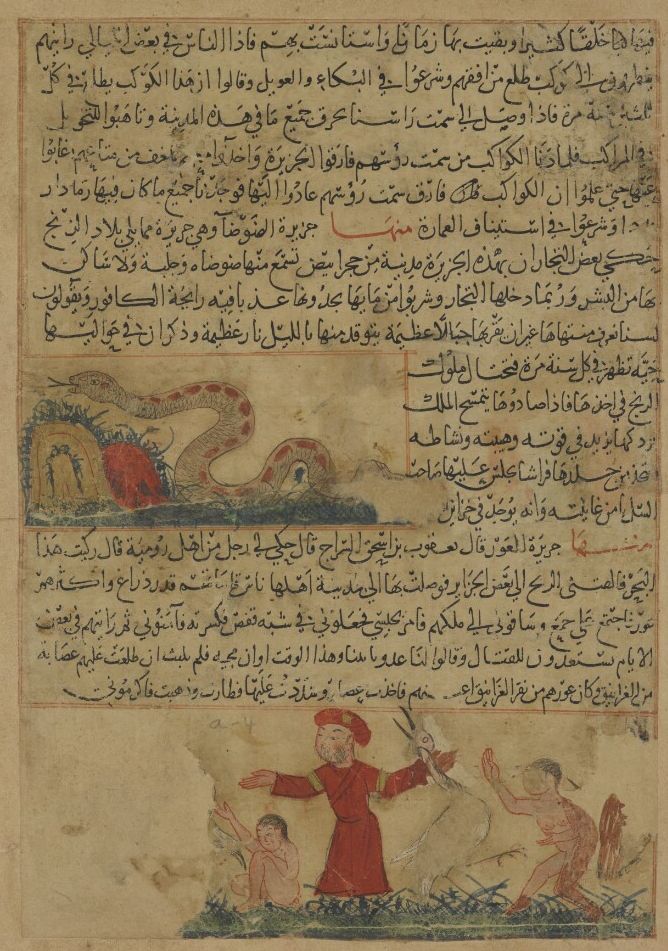 فيها خلقا كثيرا وبقيت بها زمانا واستانست بهم فاذا الناس في بعض الليالي رايتهم
ينظرون الى كوكب طلع من افقهم وشرعوا في البكاء والعويل وقالوا ان هذا الكوكب يطلع في كل
سنة مرة فاذا وصل الى سمت راسنا يحرق جميع ما في هذه المدينة وتاهبوا للتحويل
في المراكب فلما دنا الكوكب من سمت رؤسهم فارقوا الجزيرة واخذوا مع من متاعهم غابوا
عنها حتى علموا ان الكواكب فارق سمت رؤسهم عادوا اليها فوجدنا جميع ما كان فيها رمادا
وشرعوا في استيناف العمارة منها جزيرة الضوضا وهي جزيرة مما يلي بلاد الزنج
حكى بعض التجار ان بهذه الجزيرة مدينة من حجر ابيض تسمع منها ضوضاء وجلبة ولا ساكن
بها من البشر وربما دخلها التجار وشربوا من مايها يجدونها عذبا فيه رايحة الكافور ويقولون
لسنا نعرف منتهاها غير ان بقربها جبالا عظيمة يتوقد منها بالليل نار عظيمة وذكر ان في حواليها
حية تظهر في كل سنة مرة فتحتال ملوك
الزنج في اخذها فاذا صادوها يتمسح الملك
بودكها يزيد في قوته وهيبته ونشاطه
يتخذ من جلدها فراشا يجلس عليها صاحب
السل امن غايلته وانه يوجد في خزاين
منها جزيرة العور قال يعقوب بن اسحق السراج قال حكى لي رجل من اهل رومية قال ركبت هذا
البحر فالقتني الريح الى بعض الجزاير فوصلت بها الى مدينة اهلها ناس قاماتهم قدر ذراع واكثرهم
عور فاجتمع علي جمع وساقوني الى ملكهم فامر بحبسي فجعلوني في شبه قفص فكسرته فآمنوني ثم رايتهم في بعض
الايام يستعدون للقتال وقالوا لنا عدو ياتينا وهذا الوقت اوان مجيه فلم يلبث ان طلعت عليهم عصابة
من الغرانيق وكان عورهم من نقر الغرانيق فاخذت عصا وشددت عليها فطارت وذهبت فاكرموني